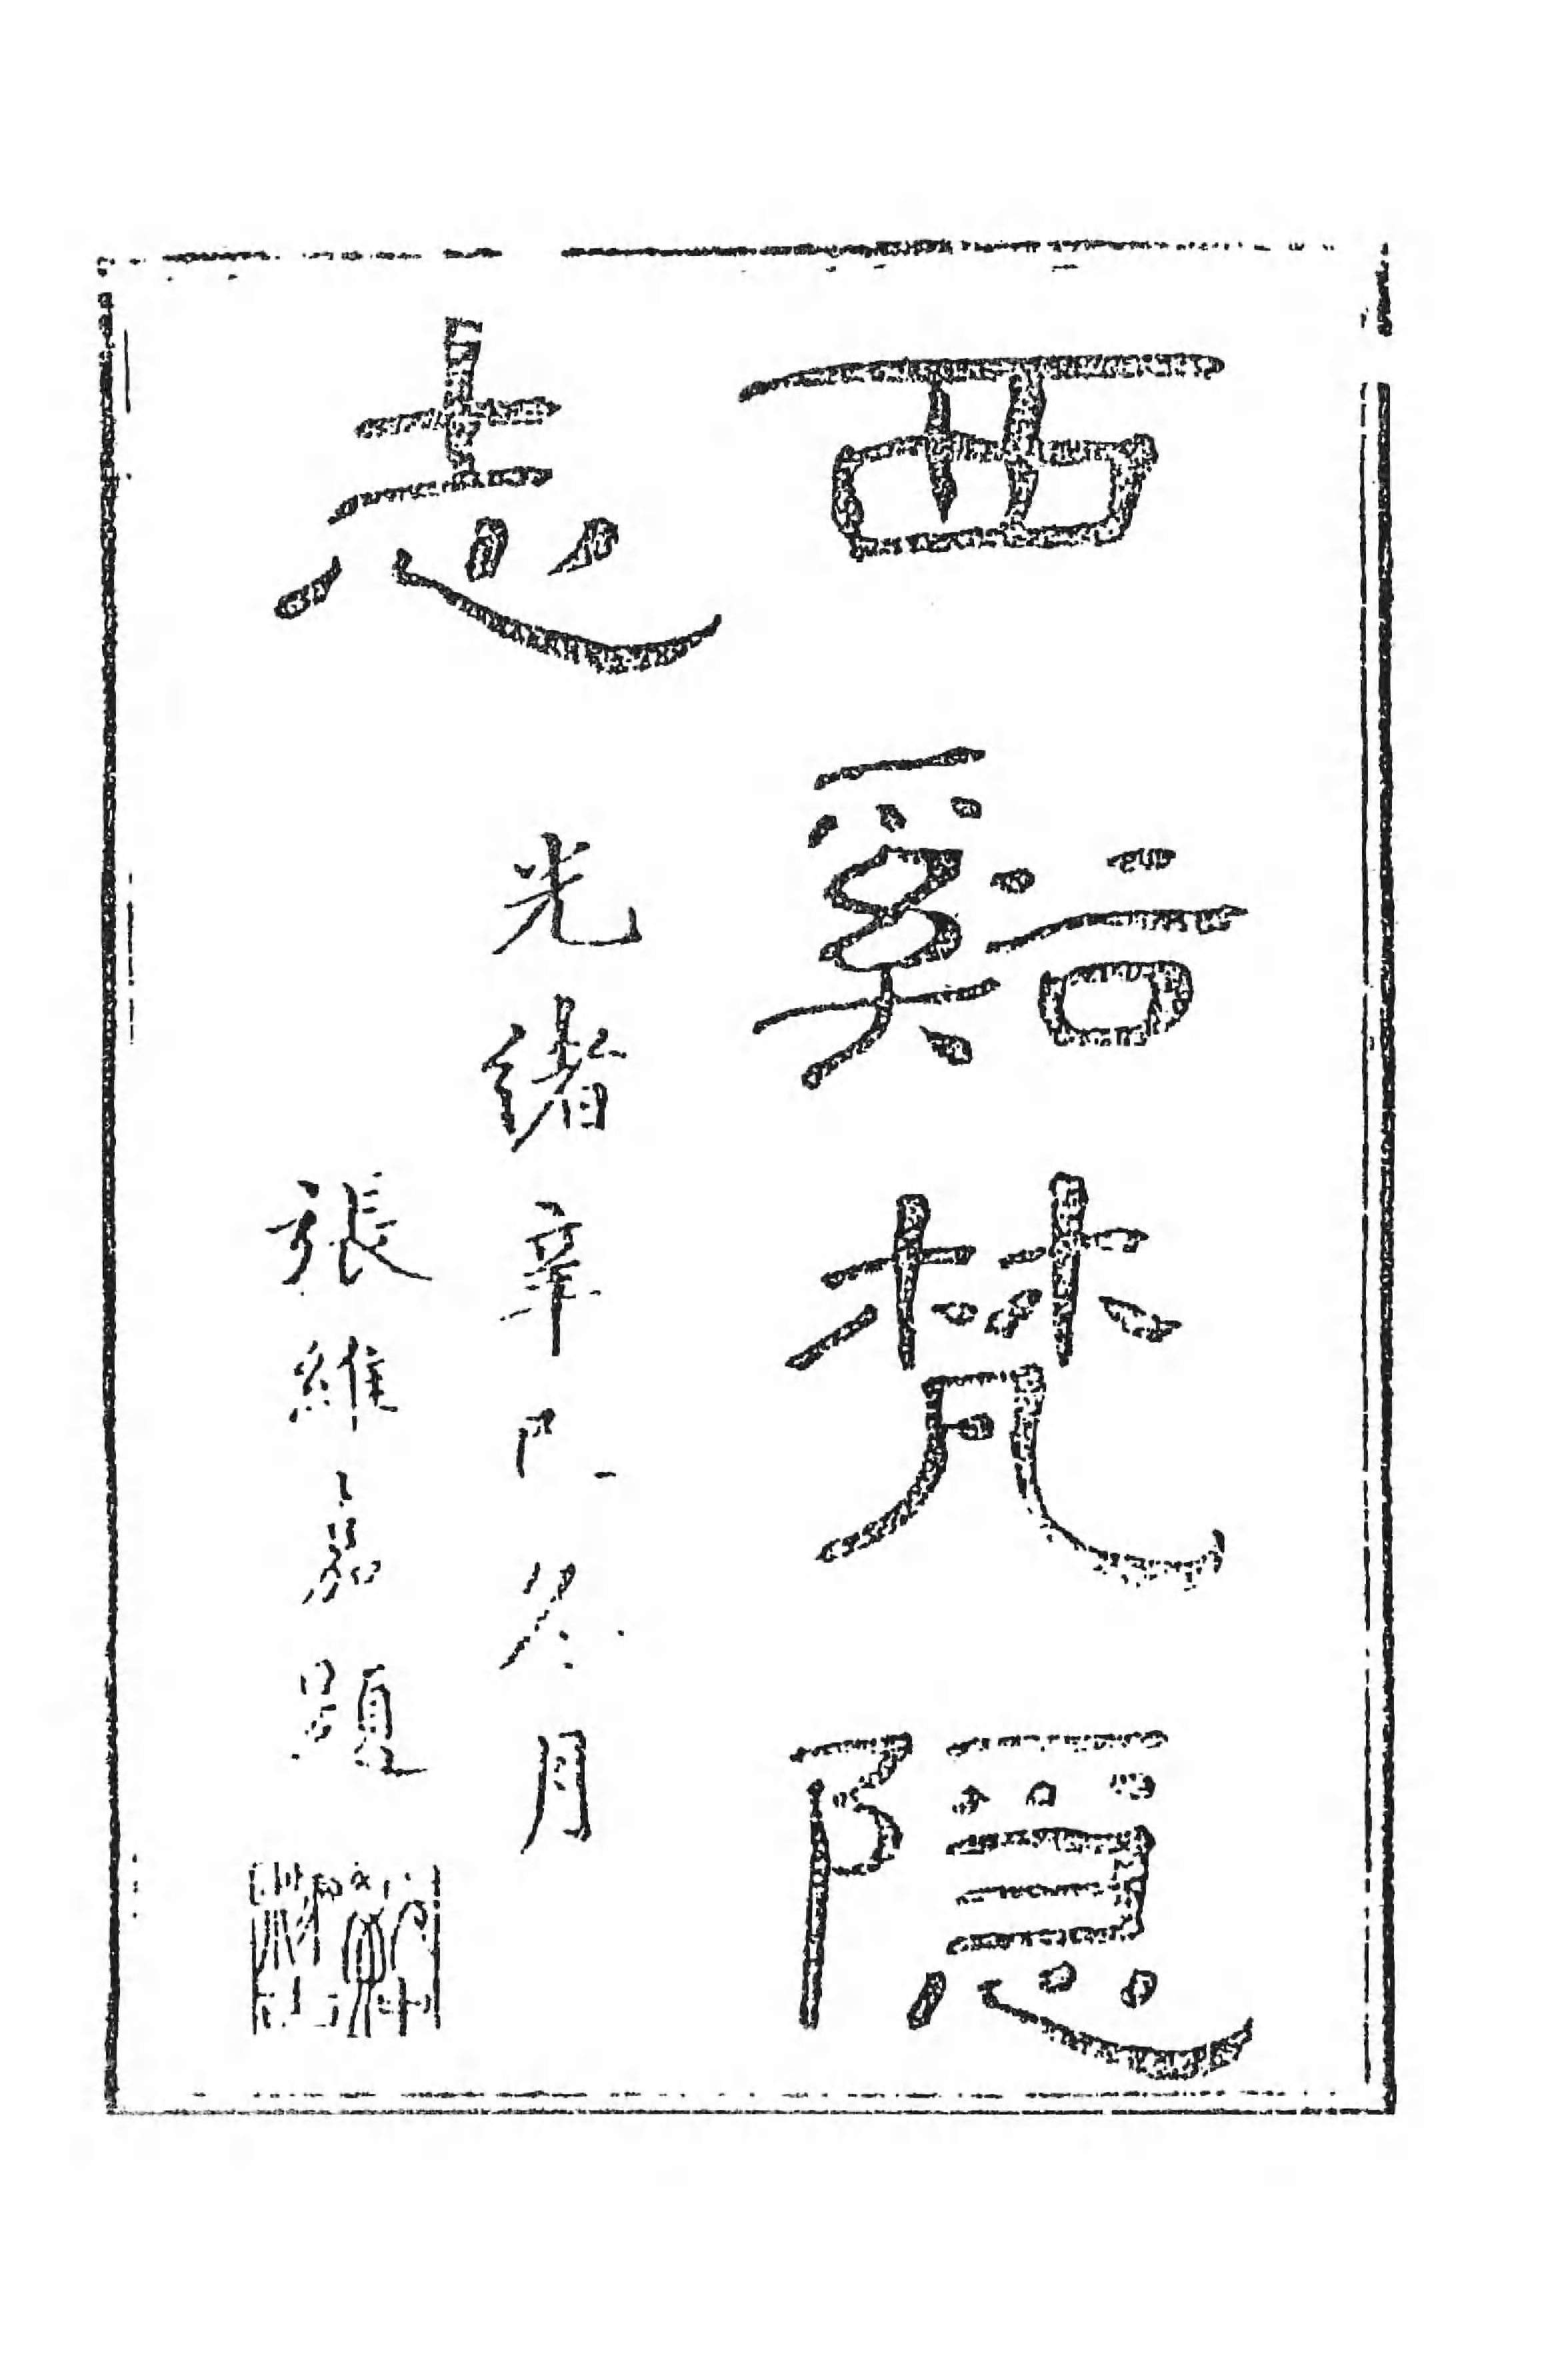 西谿梵隱
志
光緒辛巳冬月
張維嘉題